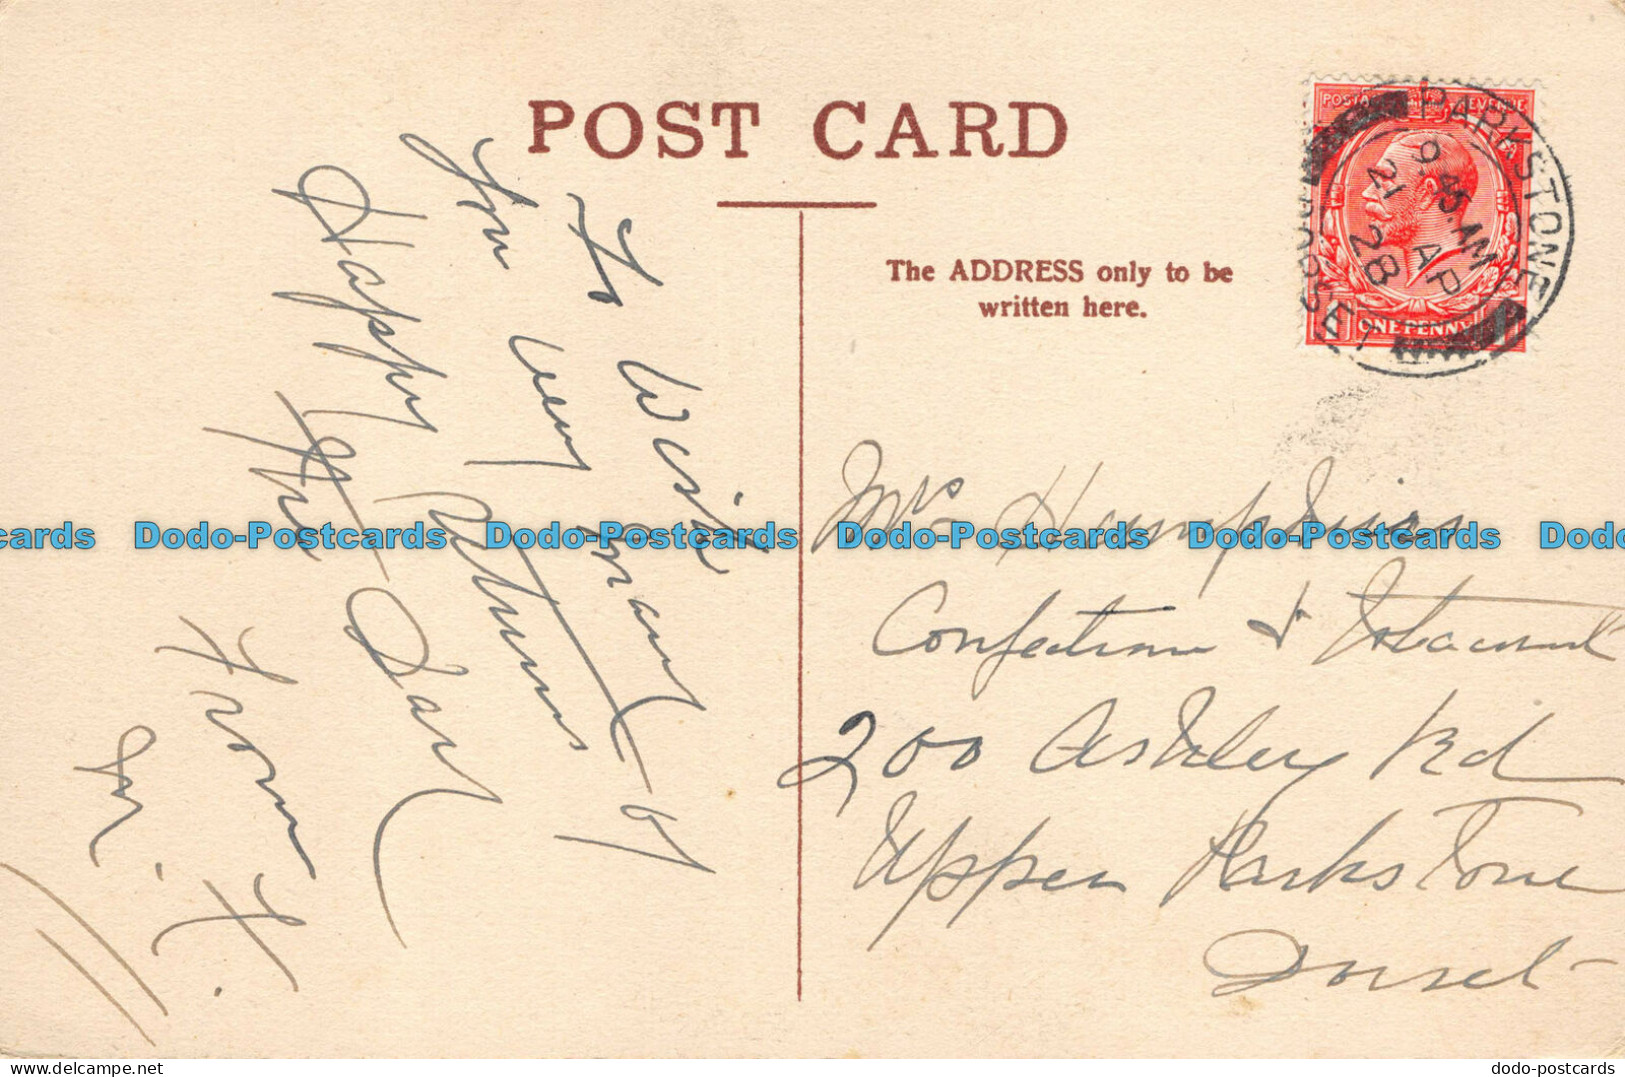 POST CARD
The ADDRESS only to be
written here.
POSTAGE REVENUE
ONE PENNY
PARKSTONE
DORSET
9.45 AM
21 AP
28
To Wish
You very many
Happy Returns of
the Day
From
Mrs Humphries
Confectioner & Tobacconist
200 Ashley Rd
Upper Parkstone
Dorset
Dodo-Postcards Dodo-Postcards Dodo-Postcards Dodo-Postcards Dodo-Postcards
www.delcampe.net
dodo-postcards